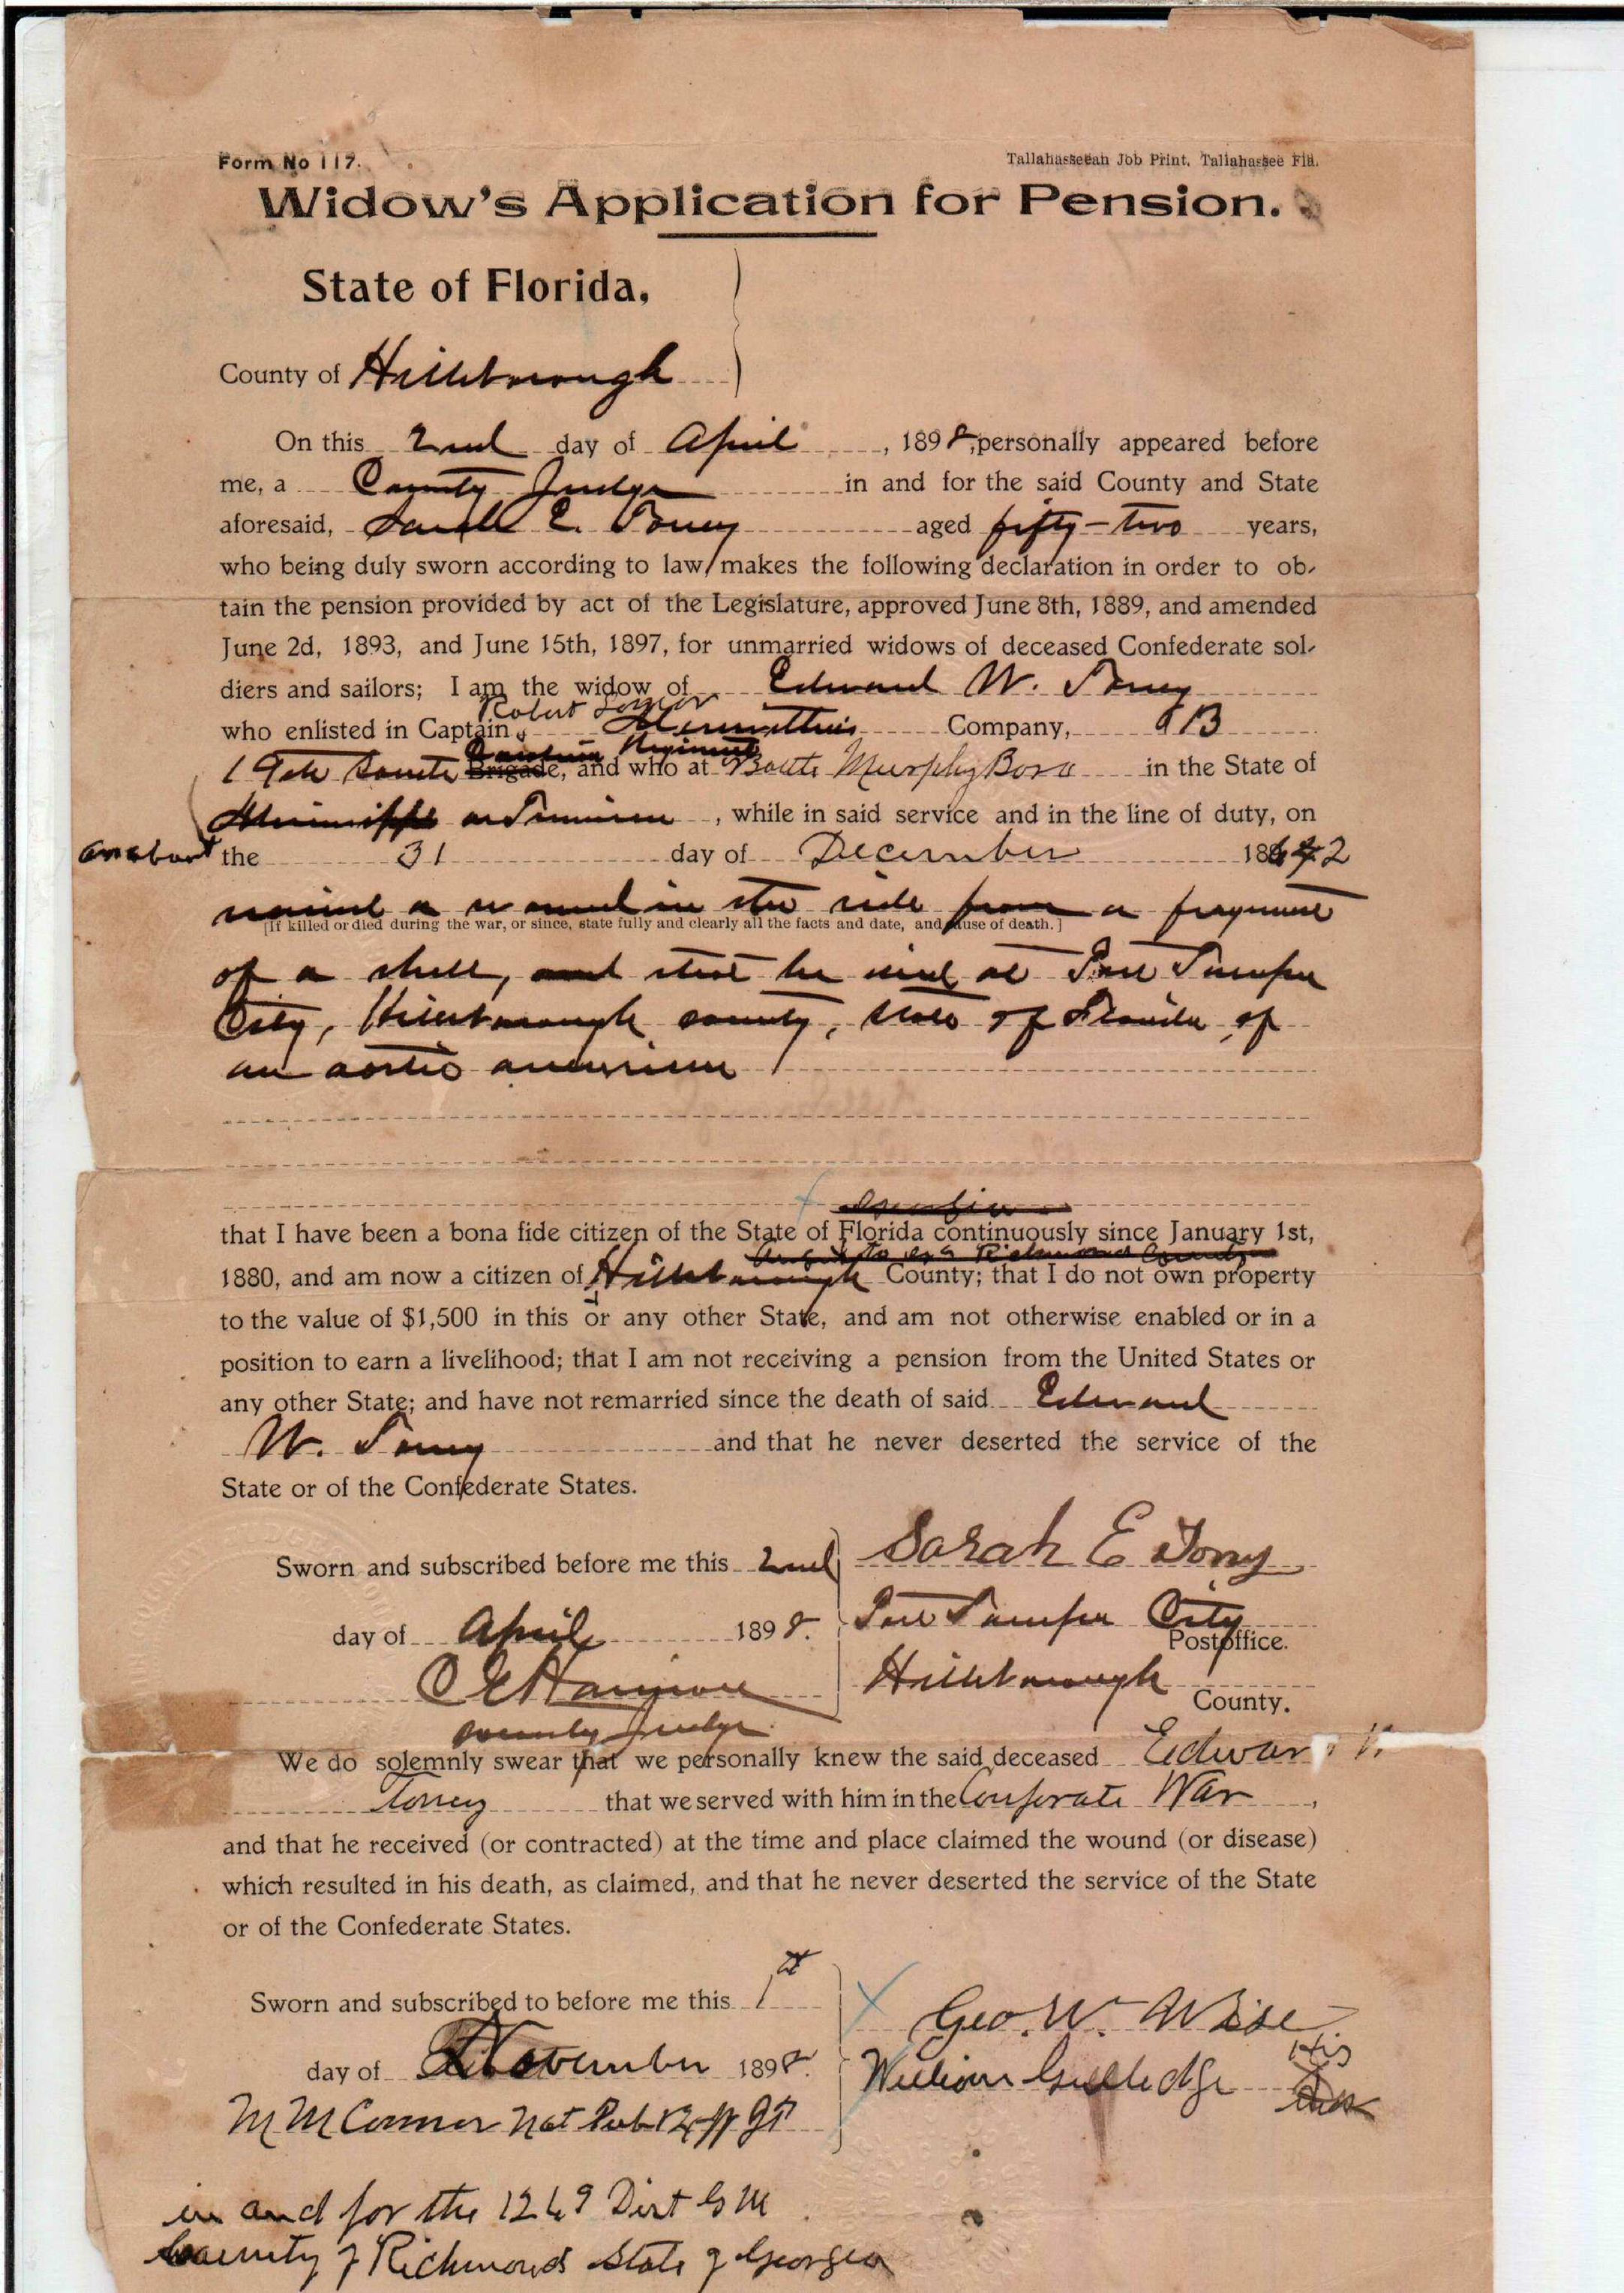 Form No 117.
Tallahasseean Job Print. Tallahassee Fla.
Widow's Application for Pension.
State of Florida,
County of Hillsborough
On this 2nd day of April, 1898, personally appeared before
me, a County Judge in and for the said County and State
aforesaid, Sarah E. Torrey aged fifty-two years,
who being duly sworn according to law, makes the following declaration in order to ob-
tain the pension provided by act of the Legislature, approved June 8th, 1889, and amended
June 2d, 1893, and June 15th, 1897, for unmarried widows of deceased Confederate sol-
diers and sailors; I am the widow of Edward W. Torrey
Robert
who enlisted in Captain Company, B
Carolina Regiment
19th South Brigade, and who at Battle Murphy Boro in the State of
Mississippi or Tennessee, while in said service and in the line of duty, on
or about the 31 day of December 1862
received a wound in the side from a fragment
[If killed or died during the war, or since, state fully and clearly all the facts and date, and cause of death.]
of a shell, and that he died at Port Tampa
City, Hillsborough county, State of Florida, of
an aortic aneurism
that I have been a bona fide citizen of the State of Florida continuously since January 1st,
Richmond County
1880, and am now a citizen of Hillsborough County; that I do not own property
to the value of $1,500 in this or any other State, and am not otherwise enabled or in a
position to earn a livelihood; that I am not receiving a pension from the United States or
any other State; and have not remarried since the death of said Edward
W. Torrey and that he never deserted the service of the
State or of the Confederate States.
Sworn and subscribed before me this 2nd
Sarah E Torry
day of April 1898.
Port Tampa City
Postoffice.
Hillsborough County.
County Judge
We do solemnly swear that we personally knew the said deceased Edward W.
Torrey that we served with him in the Conferate War,
and that he received (or contracted) at the time and place claimed the wound (or disease)
which resulted in his death, as claimed, and that he never deserted the service of the State
or of the Confederate States.
Sworn and subscribed to before me this 1st
Geo. W. Wise
day of November 1898.
William Gulledge His
M M Connor Not Pub
in and for the 1269 Dist G M
County of Richmond State of Georgia